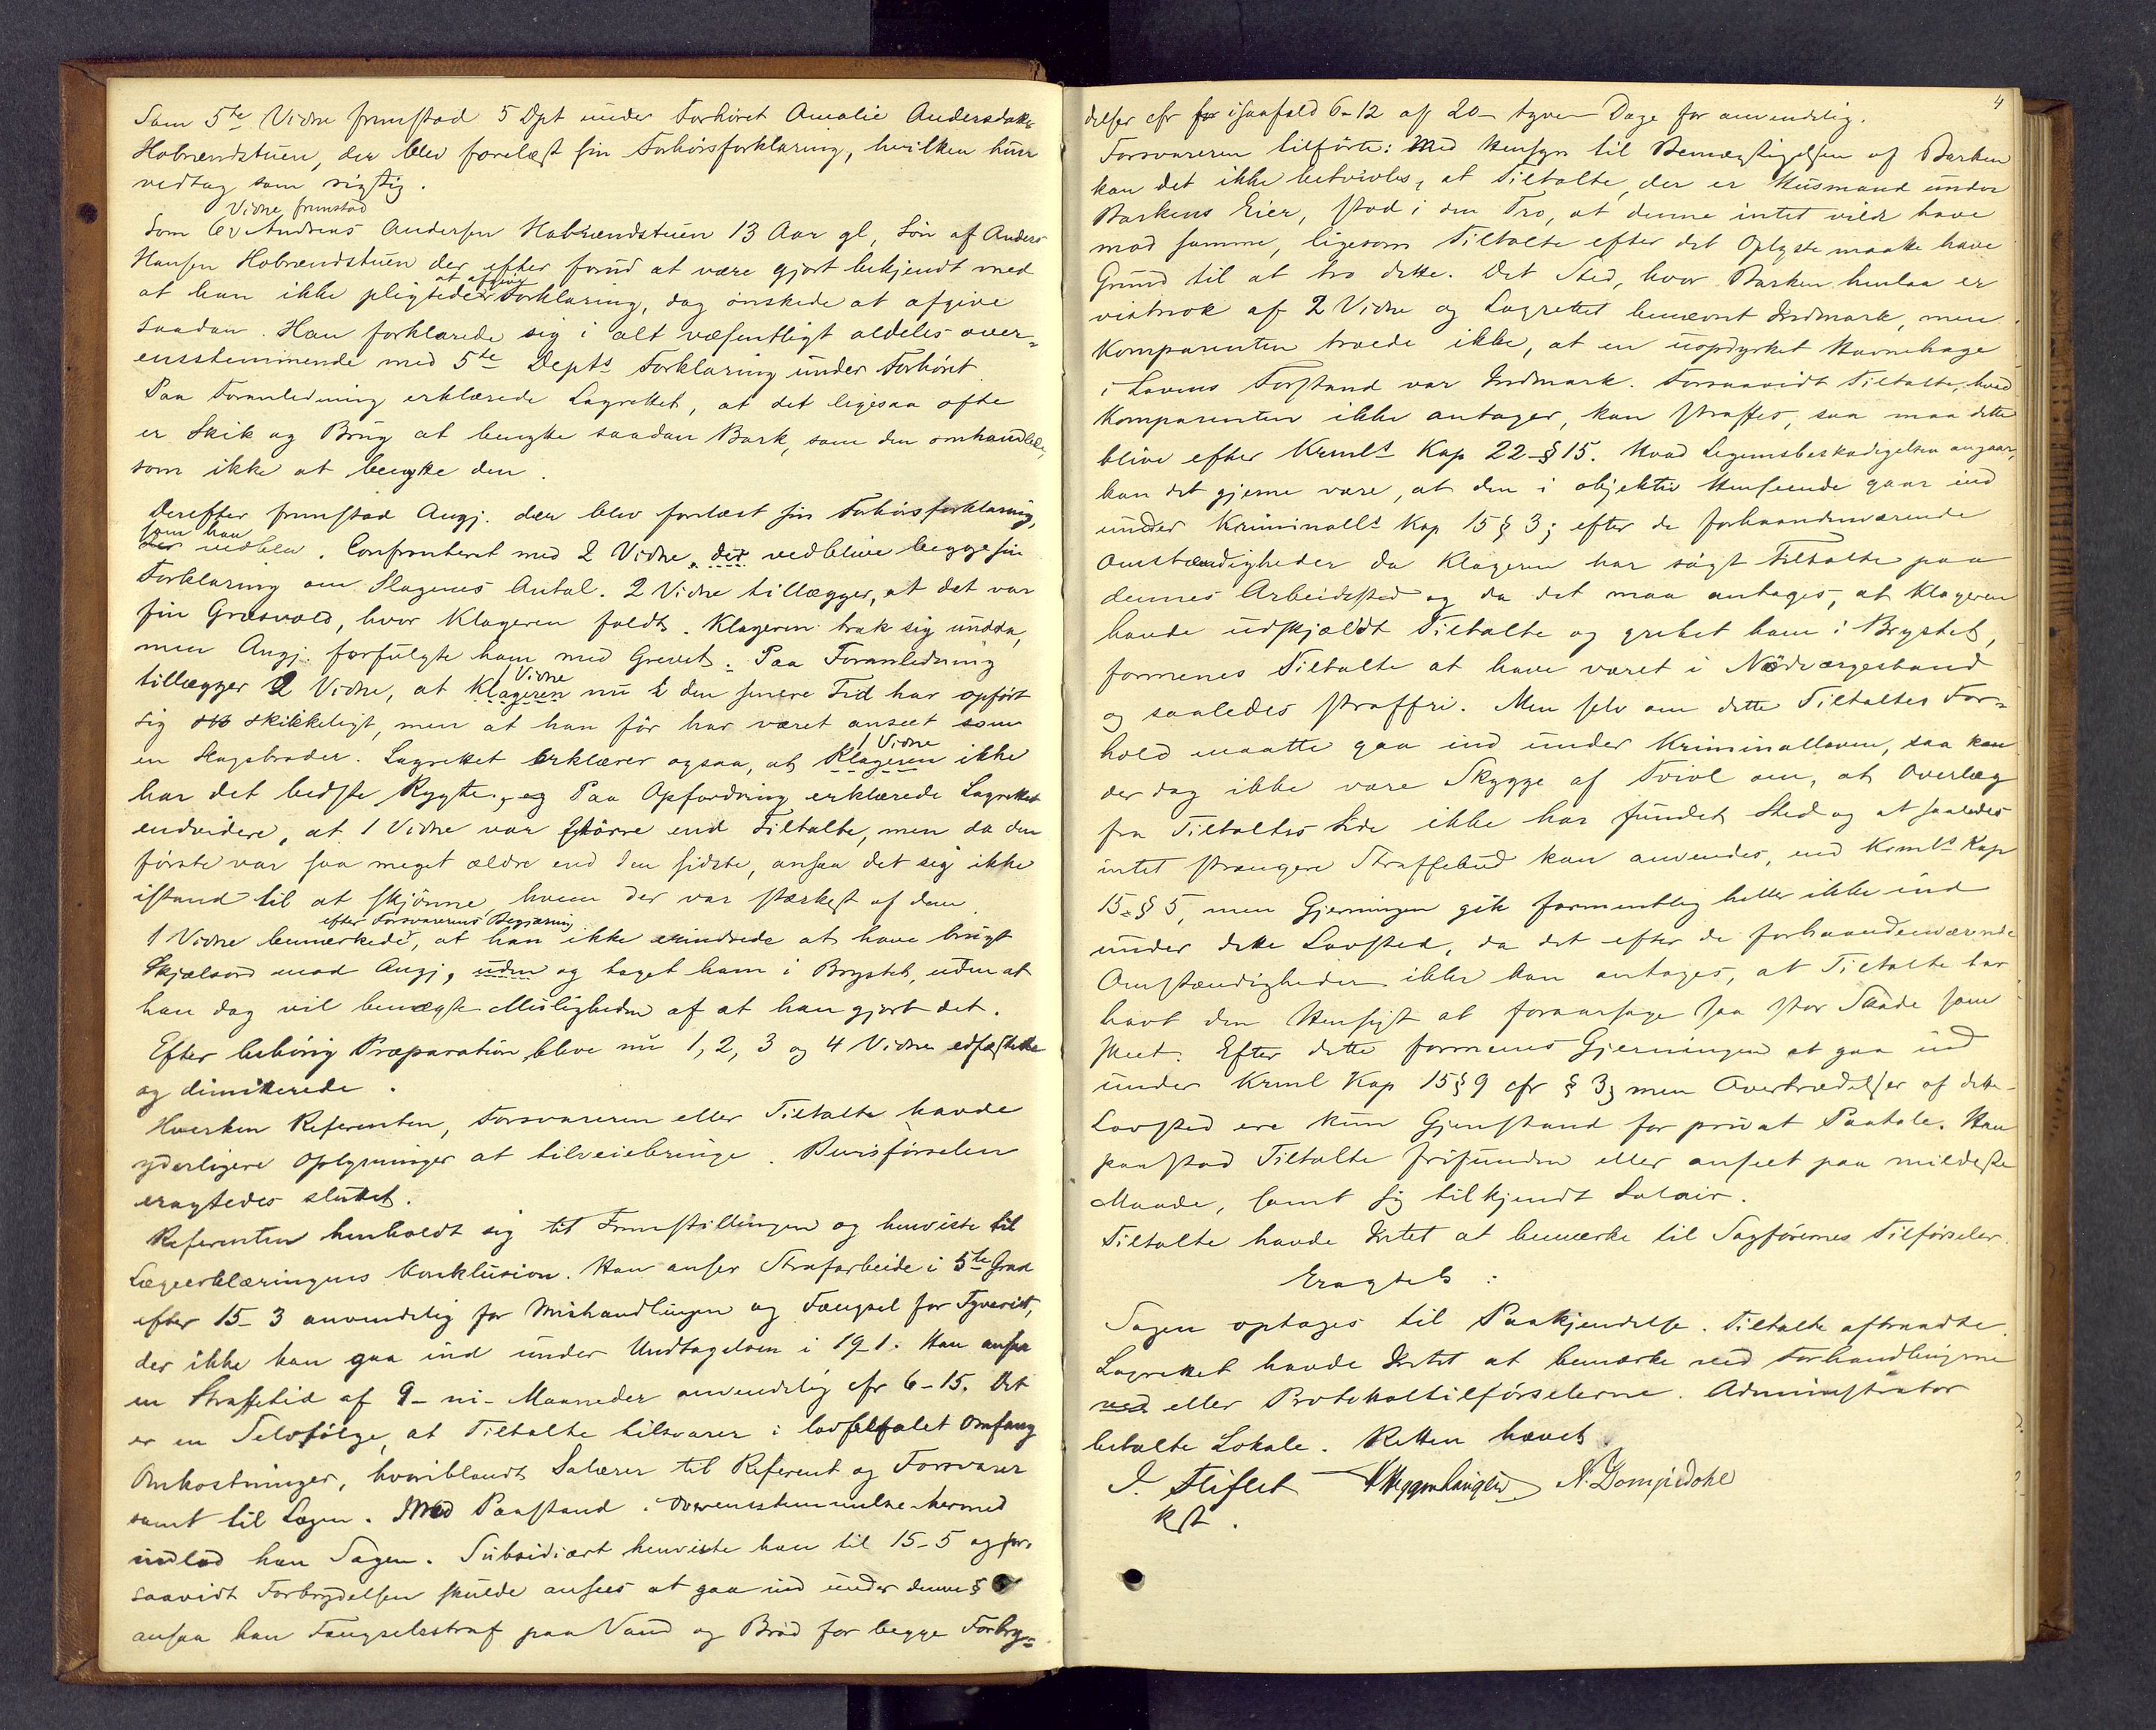 Som 5te Vidne fremstod 5 Dpt under Forhöret Amalie Andersdatter
Hobrændstuen, der blev forelæst sin Forhörsforklaring, hvilken hun
vedtog som rigtig.
Vidne fremstod
Som 6 Andreas Andersen Hobrændstuen 13 Aar gl, Sön af Anders
Hansen Hobrændstuen der efter forud at være gjort bekjendt med
at afgive
at han ikke pligtede Forklaring, dog önskede at afgive
saadan. Han forklarede sig i alt væsentligt aldeles over-
ensstemmende med 5te Depts Forklaring under Forhöret.
Paa Foranledning erklærede Lagrettet, at det ligesaa ofte
er Skik og Brug at benytte saadan Bark, som den omhandlede,
som ikke at benytte den.
Derefter fremstod Angj. der blev forelæst sin Forhörsforklaring,
som han
der vedblev. Confronteret med 2 Vidne, der vedblive begge sin
Forklaring om Slagenes Antal. 2 Vidne tillægger, at det var
fin Græsvold, hvor Klageren faldt. Klageren trak sig undda,
men Angj. forfulgte ham med Grevet. Paa Foranledning
1 Vidne
tillægger 2 Vidne, at Klageren nu i den senere Tid har opfört
sig skikkeligt, men at han för har været anseet som
1 Vidne
en Slagsbroder. Lagrettet erklærer ogsaa, at Klageren ikke
har det bedste Rygte, og Paa Opfordring erklærede Lagrettet
endvidere, at 1 Vidne var större end Tiltalte, men da den
förste var saa meget ældre end den sidste, ansaa det sig ikke
istand til at skjönne hvem der var stærkest af dem.
efter Forsvarerens Begjæring
1 Vidne bemærkede, at han ikke erindrede at have brugt
Skjælsord mod Angj, uden og taget ham i Brystet, uden at
han dog vil benægte Muligheden af at han gjort det.
Efter behörig Præparation bleve nu 1, 2, 3 og 4 Vidne edfæstede
og dimitterede.
Hverken Referenten, Forsvareren eller Tiltalte havde
yderligere Oplysninger at tilveiebringe. Bevisförselen
eragtedes sluttet.
Referenten henholdt sig til Fremstillingen og henviste til
Lægeerklæringens Konklusion. Han anser Strafarbeide i 5te Grad
efter 15-3 anvendelig for Mishandlingen og Fængsel for Tyveriet,
der ikke kan gaa ind under Undtagelsen i 19-1. Han ansaa
en Straffetid af 9- ni- Maaneder anvendelig cfr 6-15. Det
er en Selvfölge, at Tiltalte tilsvarer i lovbefalet Omfang
Omkostninger, hvoriblandt Salærer til Referent og Forsvarer
samt til Lægen. Med Paastand i Overensstemmelse hermed
indlod han Sagen. Subsidiært henviste han til 15-5 og for-
saavidt Forbrydelsen skulde ansees at gaa ind under denne §
ansaa han Fængselsstraf paa Vand og Bröd for begge Forbry-
4
delser cfr for isaafald 6-12 af 20- tyve- Dage for anvendelig.
Forsvareren tilförte: Med Hensyn til Bemægtigelsen af Barken
kan det ikke betvivles, at Tiltalte, der er Husmand under
Barkens Eier, stod i den Tro, at denne intet vilde have
mod samme, ligesom Tiltalte efter det Oplyste maatte have
Grund til at tro dette. Det Sted, hvor Barken henlaa er
vistnok af 2 Vidne og Lagrettet benævnt Indmark, men
Komparenten troede ikke, at en uopdyrket Havnehage
i Lovens Forstand var Indmark. Forsaavidt Tiltalte, hvad
Komparenten ikke antager, kan straffes, saa maa dette
blive efter Krmls Kap 22-§ 15. Hvad Legemsbeskadigelsen angaar,
kan det gjerne være, at den i objektiv Henseende gaar ind
under Kriminalls Kap 15 § 3; efter de forhaandenværende
Omstændigheder da Klageren har sögt Tiltalte paa
dennes Arbeidssted og da det maa antages, at Klageren
havde udskjældt Tiltalte og grebet ham i Brystet,
formenes Tiltalte at have været i Nödværgestand
og saaledes straffri. Men selv om dette Tiltaltes For-
hold maatte gaa ind under Kriminalloven, saa kan
der dog ikke være Skygge af Tvivl om, at Overlæg
fra Tiltaltes Side ikke har fundet Sted og at saaledes
intet strængere Straffebud kan anvendes, end Krmls Kap
15-§ 5, men Gjerningen gik formentlig heller ikke ind
under dette Lovsted, da det efter de forhaandenværende
Omstændigheder ikke kan antages, at Tiltalte har
havt den Hensigt at foraarsage saa stor Skade som
skeet. Efter dette formenes Gjerningen at gaa ind
under Krml Kap 15 § 9 cfr § 3, men Overtrædelser af dette
Lovsted ere kun Gjenstand for privat Paatale. Han
paastod Tiltalte frifunden eller anseet paa mildeste
Maade, samt sig tilkjendt Salair.
Tiltalte havde Intet at bemærke til Sagförernes Tilförseler.
Eragtet:
Sagen optages til Paakjendelse. Tiltalte aftraadte.
Lagrettet havde Intet at bemærke ved Forhandlingerne
ved eller Protokoltilförselerne. Administrator
betalte Lokale. Retten hævet.
J. Fleflet N. Dompidohl
kst.